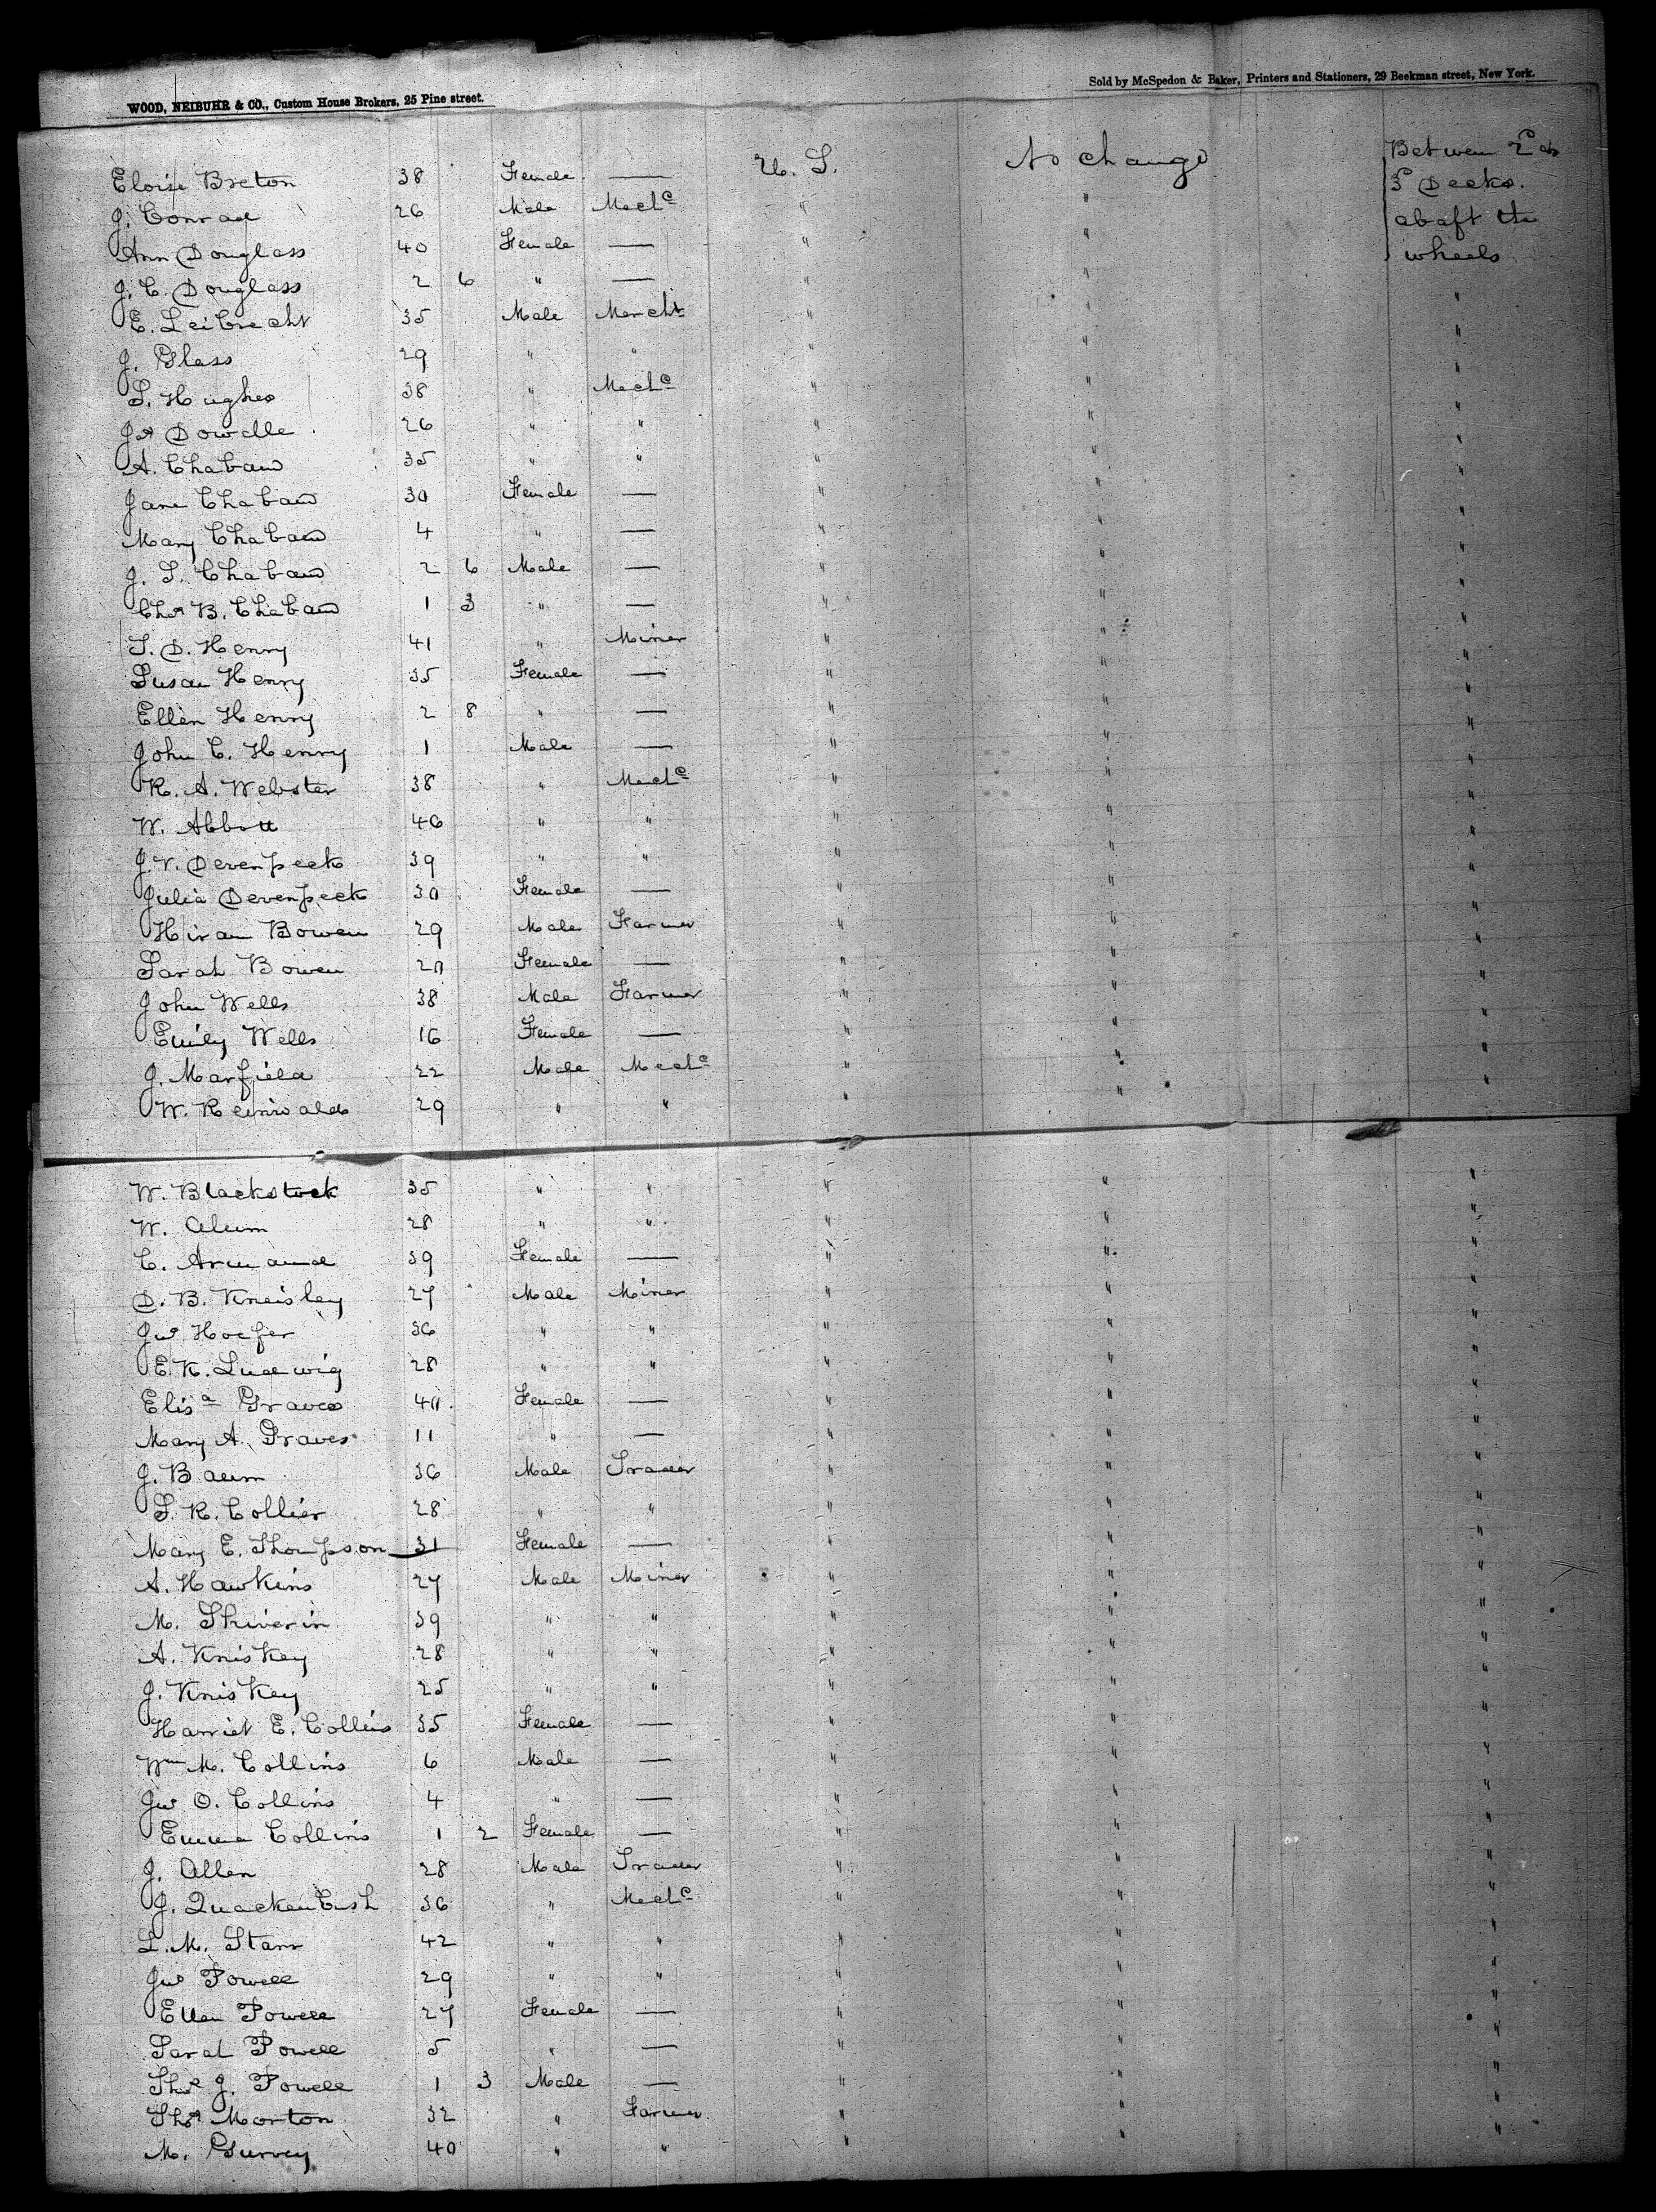 WOOD, NEIBUHR & CO., Custom House Brokers, 25 Pine street.
Sold by McSpedon & Baker, Printers and Stationers, 29 Beekman street, New York.
Eloise Breton 38 Female — U. S. No change Between 2d &
J. Conrad 26 Male Mechc " " 3d Decks.
Ann Douglass 40 Female — " " abaft the
J. C. Douglass 2 6 " — " " wheels
E. Leibrecht 35 Male Mercht " " "
J. Glass 29 " " " " "
S. Hughes 38 " Mechc " " "
Jas Dowelle 26 " " " " "
A. Chabaud 35 " " " " "
Jane Chabaud 30 Female — " " "
Mary Chabaud 4 " — " " "
J. S. Chabaud 2 6 Male — " " "
Chas B. Chabaud 1 3 " — " " "
T. D. Henry 41 " Miner " " "
Susan Henry 35 Female — " " "
Ellen Henry 2 8 " — " " "
John C. Henry 1 Male — " " "
R. A. Webster 38 " Mechc " " "
W. Abbott 46 " " " " "
J. V. Devenpeck 39 " " " " "
Julia Devenpeck 30 Female — " " "
Hiram Bowen 29 Male Farmer " " "
Sarah Bowen 20 Female — " " "
John Wells 38 Male Farmer " " "
Emily Wells 16 Female — " " "
J. Marfield 22 Male Mechc " " "
W. Reinwald 29 " " " " "
W. Blackstock 35 " " " " "
W. Alum 28 " " " " "
C. Armand 39 Female — " " "
D. B. Kneisley 27 Male Miner " " "
Jno Hoefer 36 " " " " "
E. K. Ludwig 28 " " " " "
Elisa Graves 40 Female — " " "
Mary A. Graves 11 " — " " "
J. Baum 36 Male Trader " " "
S. R. Collier 28 " " " " "
Mary E. Thompson 31 Female — " " "
A. Hawkins 27 Male Miner " " "
M. Shiverin 39 " " " " "
A. Kniskey 28 " " " " "
J. Kniskey 25 " " " " "
Harriet E. Collins 35 Female — " " "
Wm M. Collins 6 Male — " " "
Jno O. Collins 4 " — " " "
Emma Collins 1 2 Female — " " "
J. Allen 28 Male Trader " " "
J. Quackenbush 36 " Mechc " " "
L. M. Starr 42 " " " " "
Jno Powell 29 " " " " "
Ellen Powell 27 Female — " " "
Sarah Powell 5 " — " " "
Thos J. Powell 1 3 Male — " " "
Thos Morton 32 " Farmer " " "
M. Gurvey 40 " " " " "